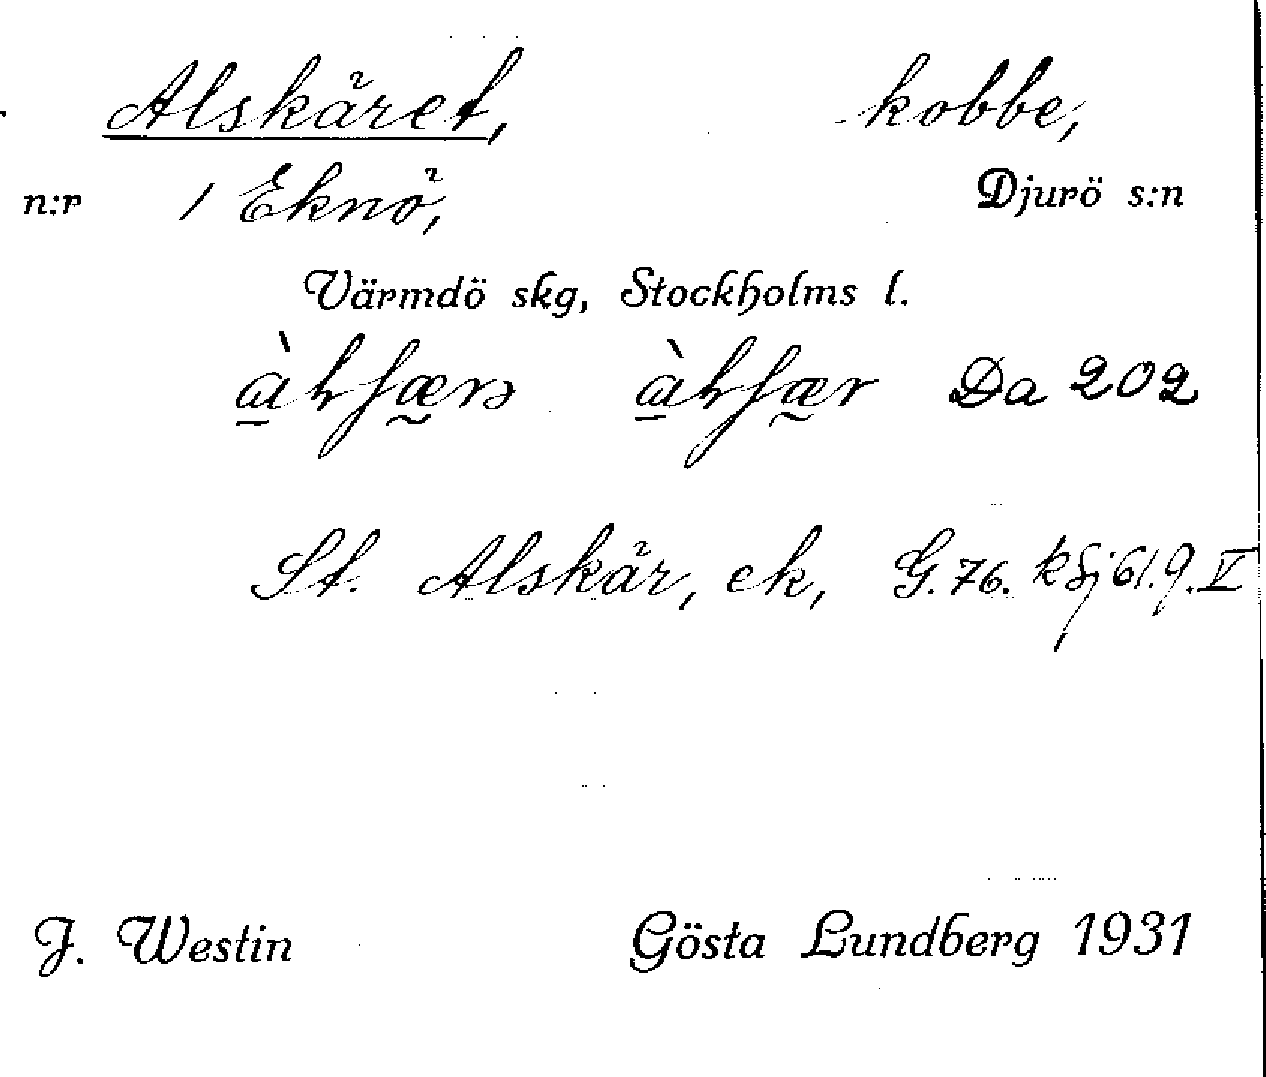 Alskäret, kobbe,
n:r 1 Eknö, Djurö s:n
Värmdö skg, Stockholms l.
Da 202
St. Alskär, ek, G. 76.
J. Westin Gösta Lundberg 1931